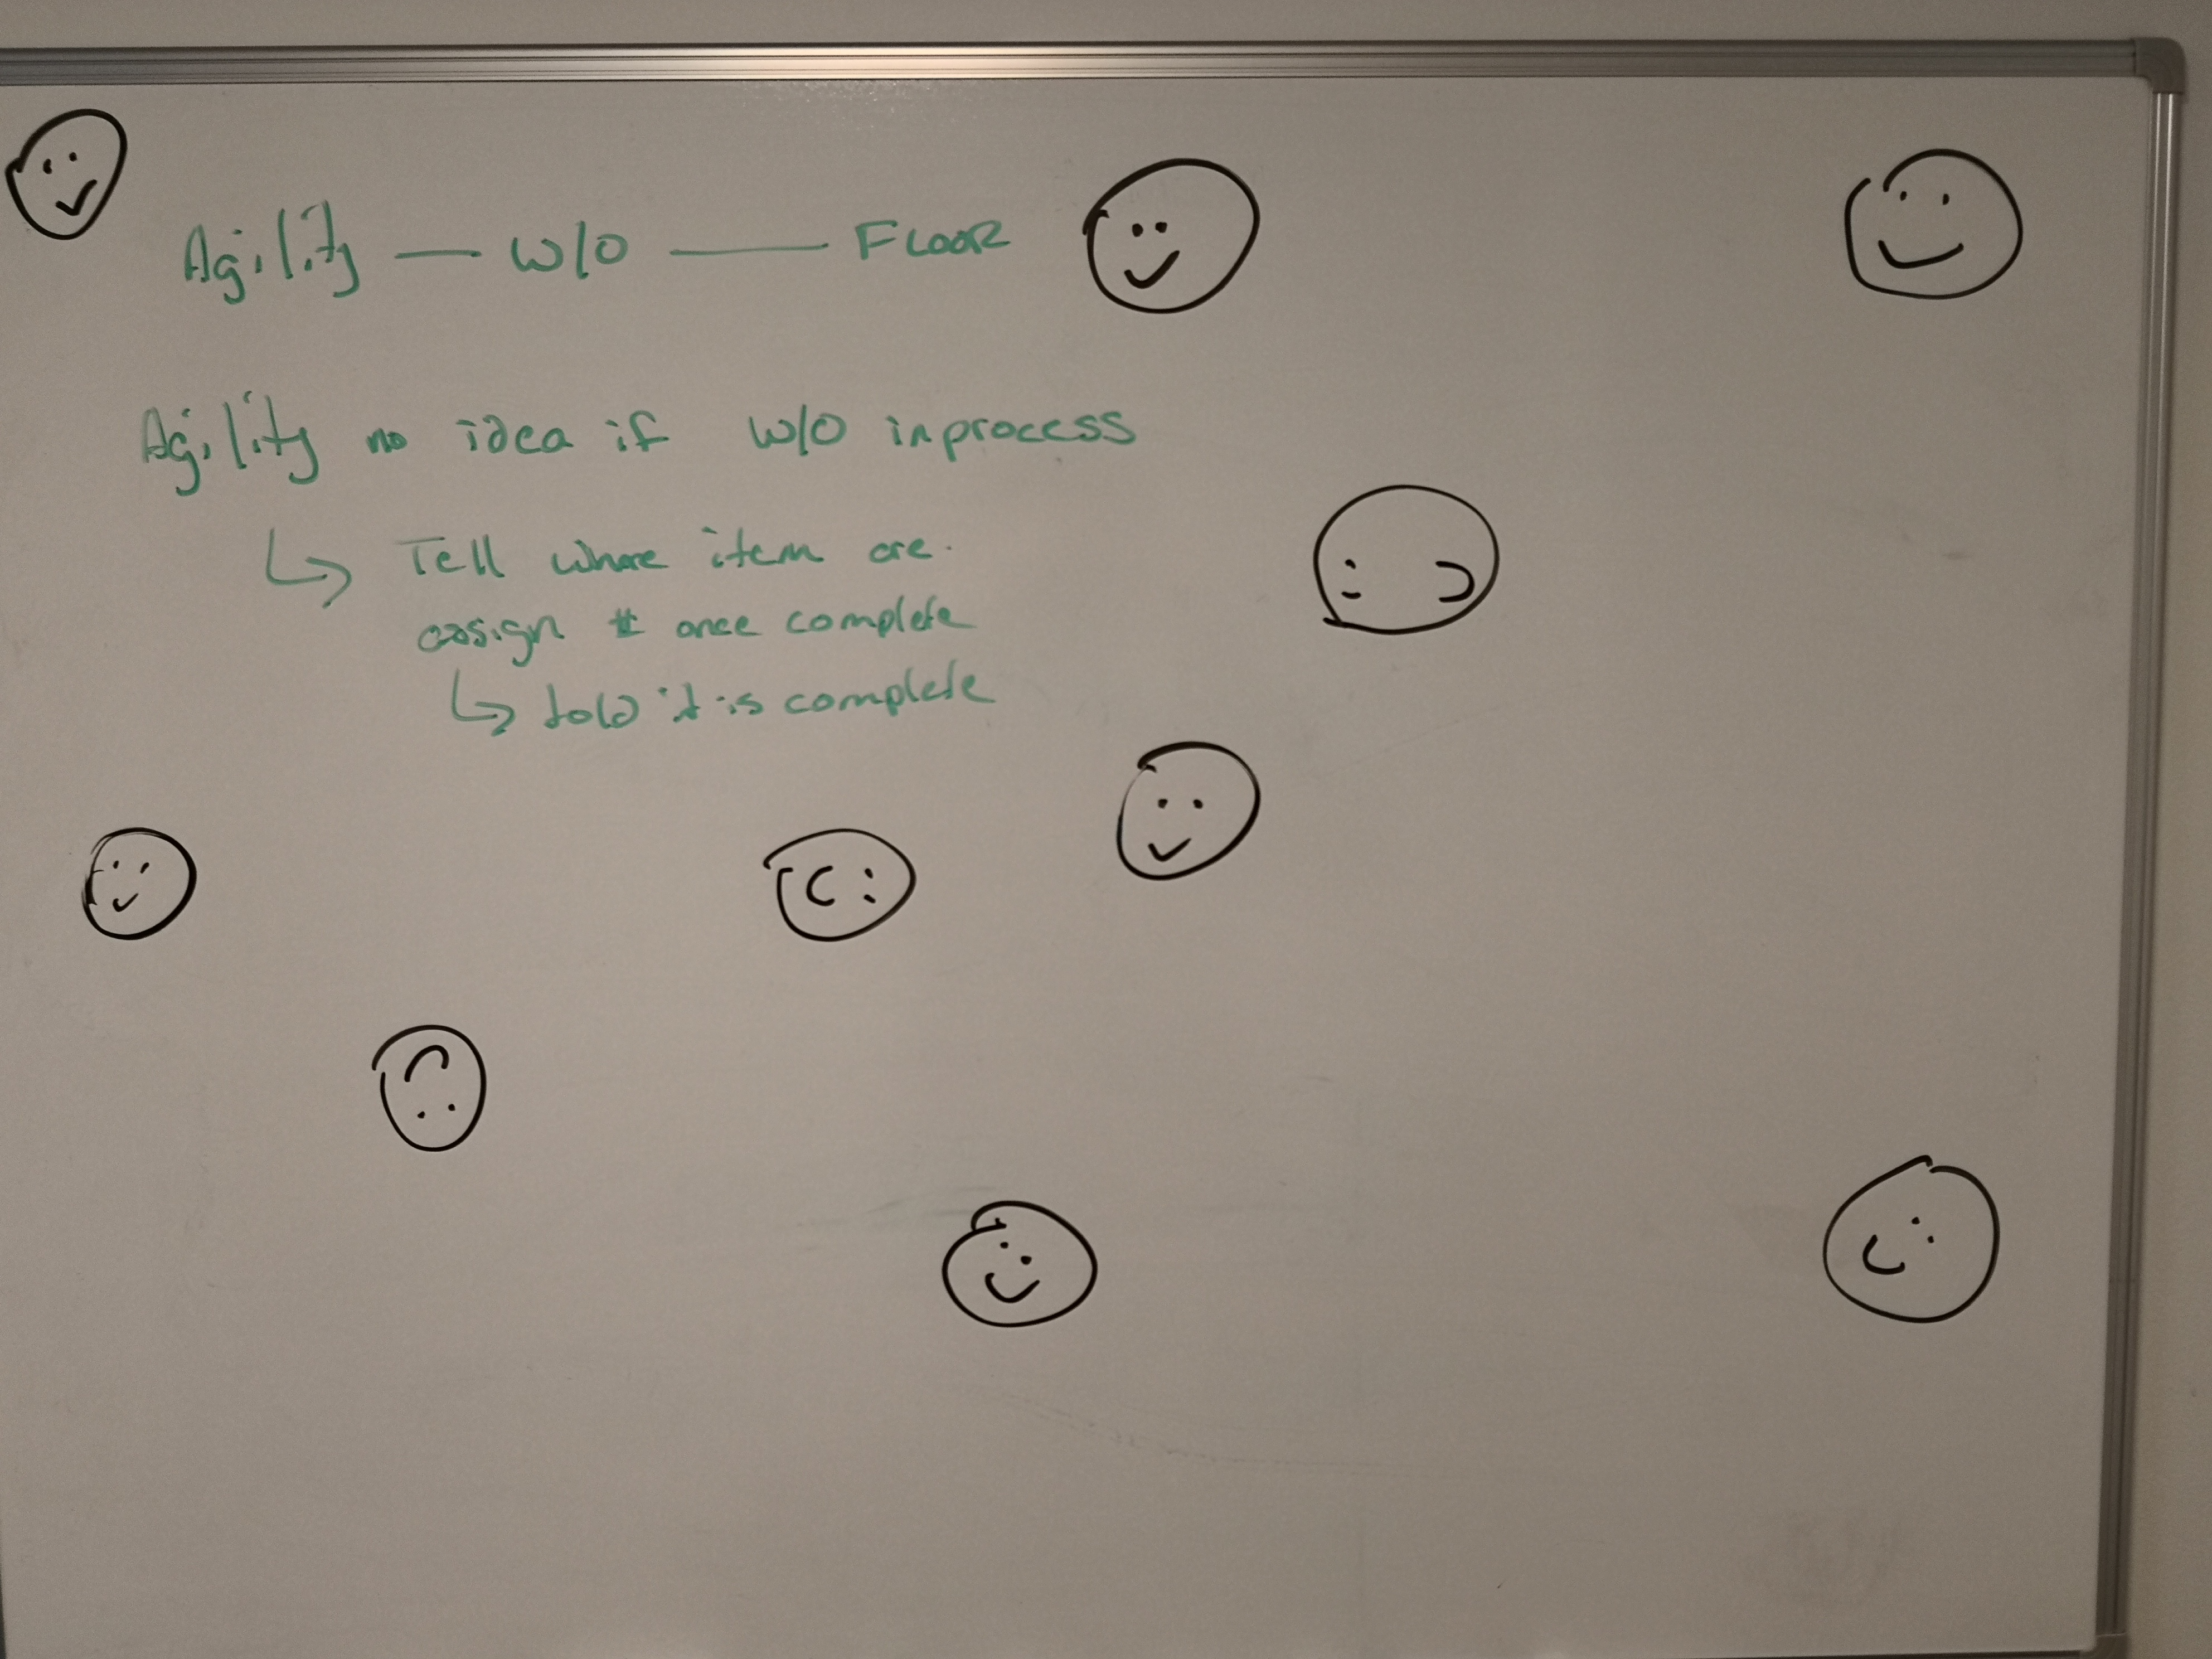 Agility — w/o — FLOOR
Agility no idea if w/o inprocess
↳ Tell where item are.
assign # once complete
↳ told it is complete